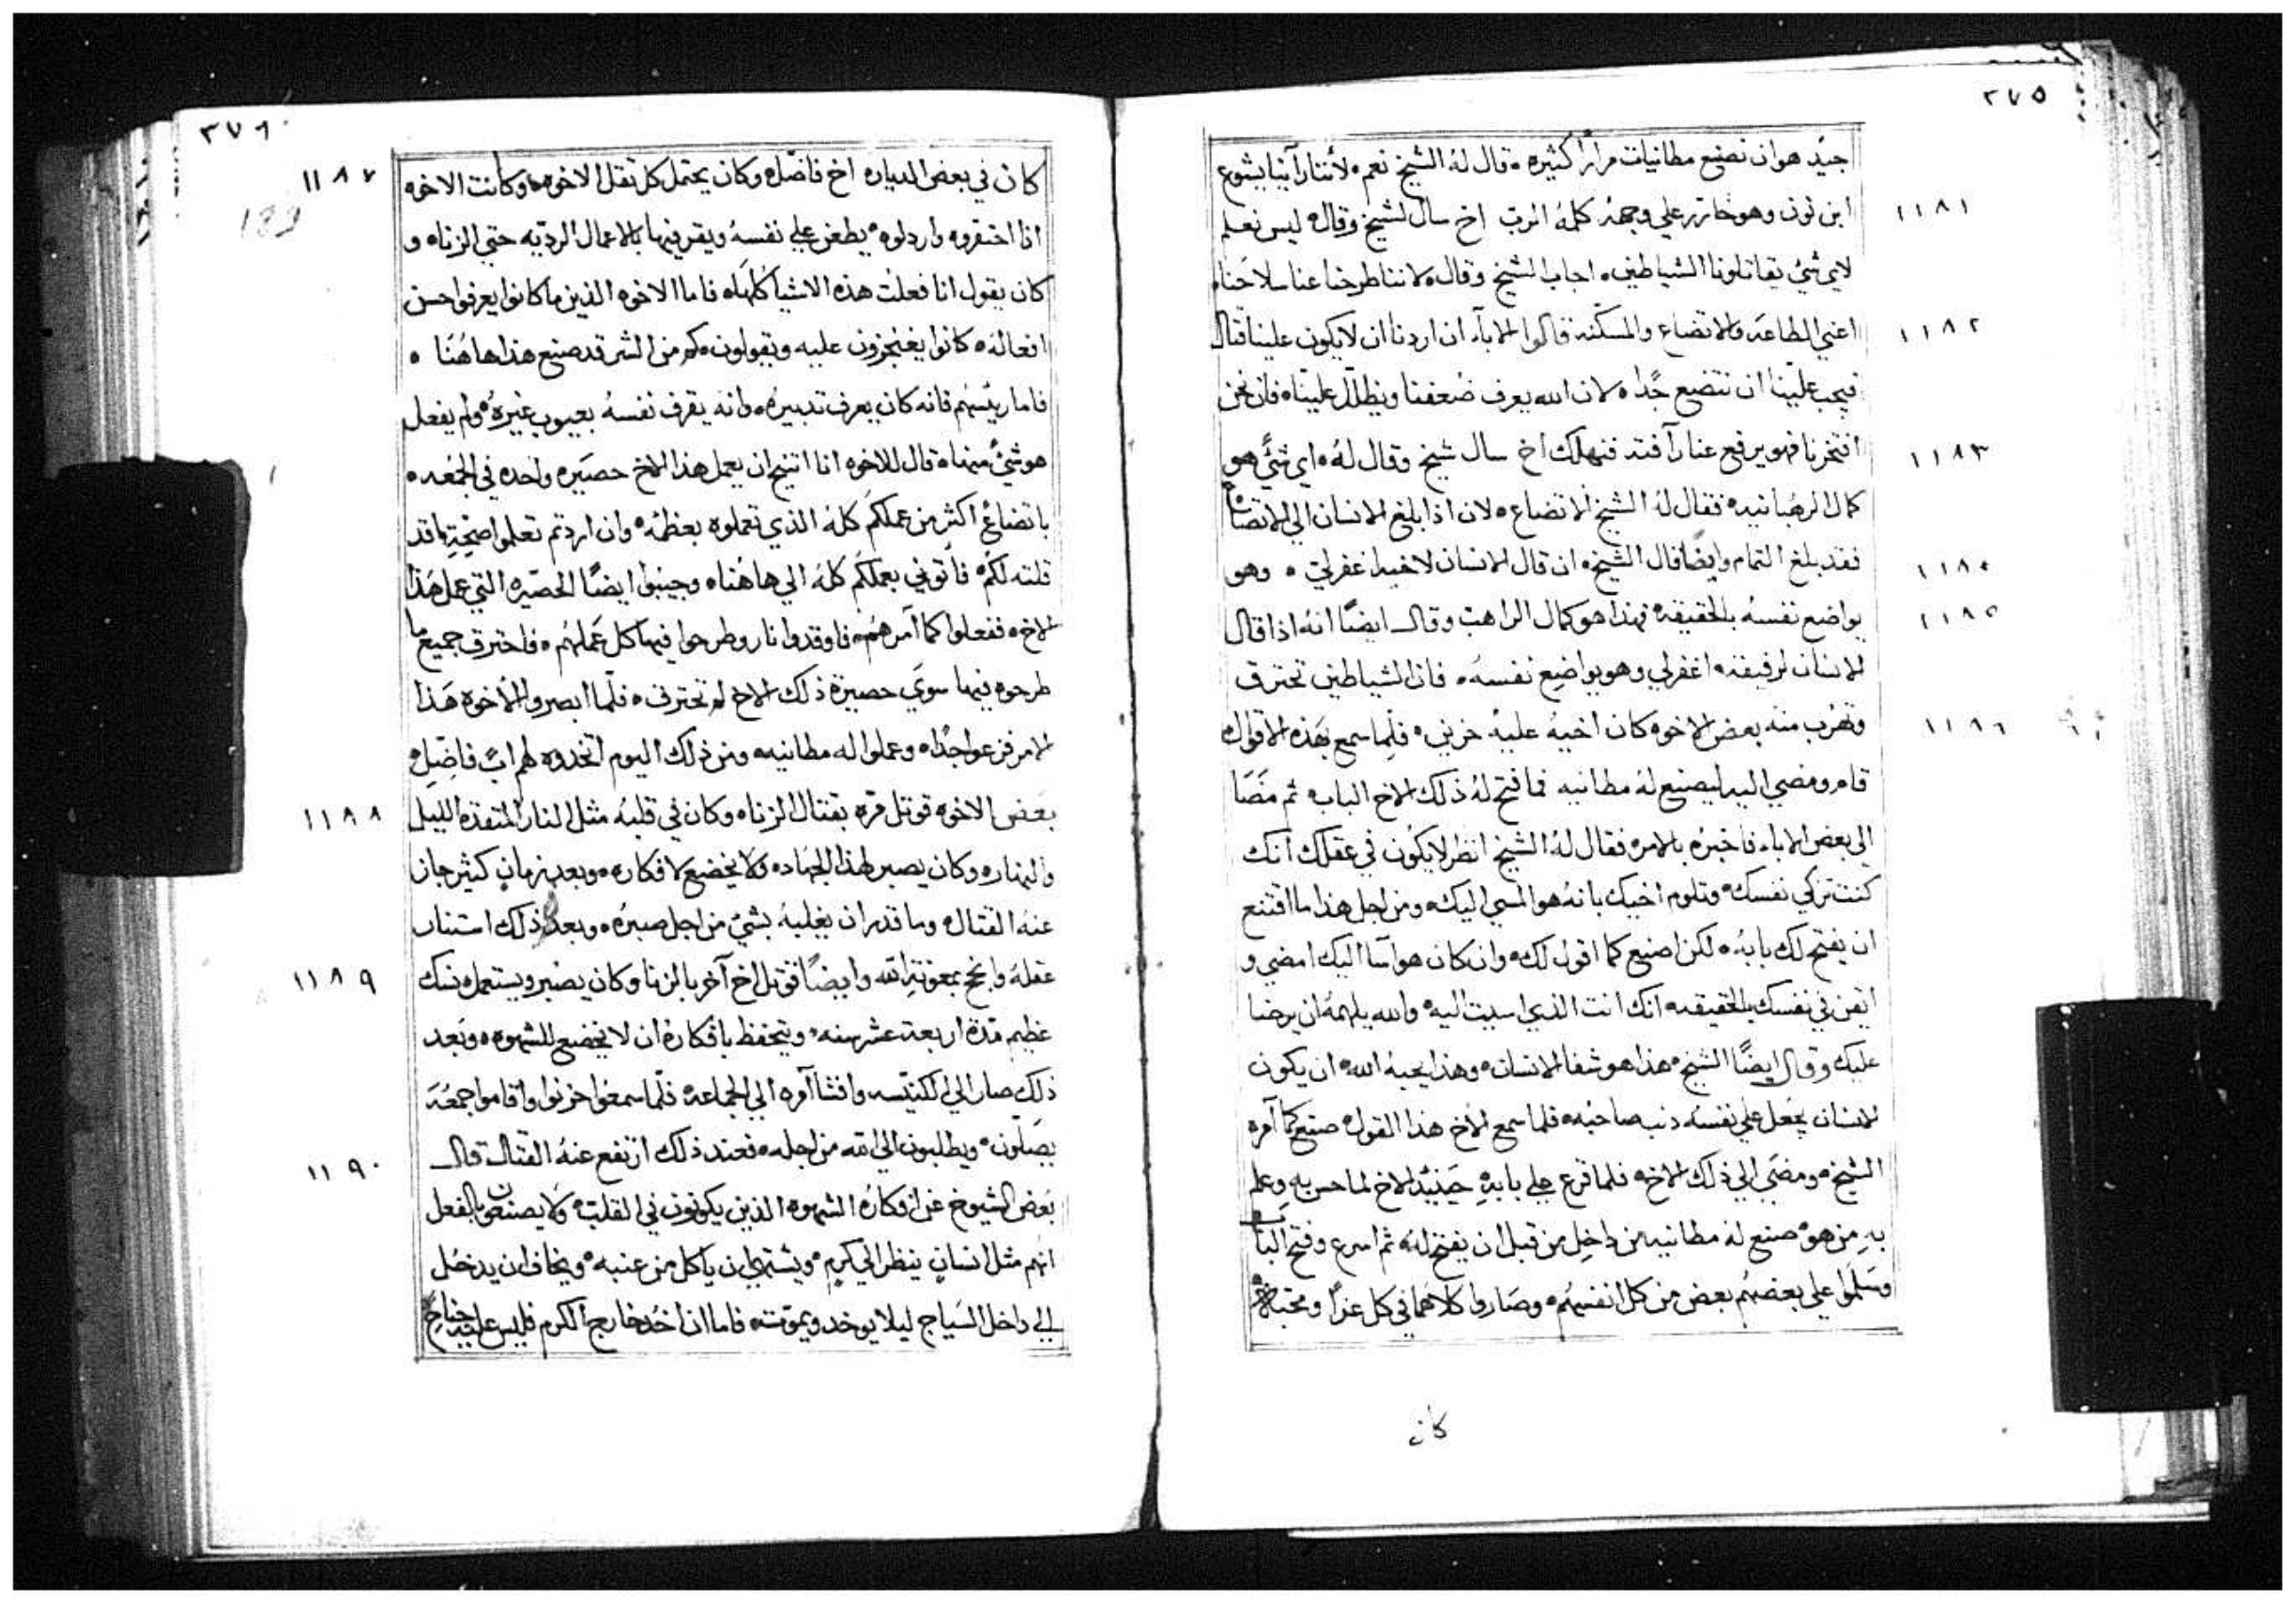 ٣٧٥
جيّد هو ان نصنع مطانيات مرارًا كثيره ٥ قال لهُ الشيخ نعم ٥ لأننا رآينا يشوع
١١٨١ ابن نون وهو خارر علي وجههُ كلمهُ الرب اخ سال لشيخ وقال ٥ ليس نعلم
لاي شيُ يقاتلونا الشياطين ٥ اجاب الشيخ وقال ٥ لاننا طرحنا عنا سلاحنا ٥
١١٨٢ اعني الطاعه والاتضاع والمسكنه قالوا الابآء ان اردنا ان لا يكون علينا قتال
فيجب علينا ان نتضع جدًا ٥ لان الله يعرف ضعفنا ويظلّل علينا ٥ فان نحن
١١٨٣ افتخرنا فهو يرفع عنا رآفته فنهلك اخ سال شيخ وقال لهُ ٥ اي شيً هو
كمال الرهبانيه ٥ فقال لهُ الشيخ الاتضاع ٥ لان اذا بلغ الانسان الي الاتضاع
١١٨٤ فقد بلغ التمام وايضًا قال الشيخ ٥ ان قال الانسان لاخيه اغفرلي ٥ وهو
١١٨٥ يواضع نفسهُ بالحقيقه ٥ فهذا هو كمال الراهب وقال ايضًا انهُ اذا قال
الانسان لرفيقه ٥ اغفرلي وهو يواضع نفسهَ ٥ فان الشياطين تحترق
١١٨٦ وتهرب منه بعض الاخوه كان اخيهُ عليهُ حزين ٥ فلما سمع بهذه الاقوال
قام ومضي اليه ليصنع لهُ مطانيه فما فتح لهُ ذلك الاخ الباب ٥ ثم مَضَا
الي بعض الاباء فاخبرهُ بالامر ٥ فقال لهُ الشيخ انظر لا يكُون في عقلك انك
كنت تزكي نفسك ٥ وتلوم اخيك بانهُ هو المسي اليك ٥ ومن اجل هذا ما اقتنع
ان يفتح لك بابهُ ٥ لكن اصنع كما اقول لك ٥ وان كان هو اسا اليك امضي و
اتقن في نفسك بالحقيقه انك انت الذي اسيت اليه ٥ والله يلهمهُ ان يرضا
عليك وقال ايضًا الشيخ ٥ هذا هو شفا الانسان ٥ وهذا يحبهُ الله ٥ ان يكون
الانسان يجعل علي نفسهُ دنب صاحبهُ ٥ فلما سمع الاخ هذا القول ٥ صنع كما آمره
الشيخ ٥ ومضَي الي ذلك الاخ ٥ فلما قرع علي بابهِ حَينيُد الاخ لما حس بهِ وعلم
بهِ من هو ٥ صنع لهُ مطانيه من داخِل من قبل ان يفتح لهُ ٥ ثم اسرع وفتح الباب
وسَلموا علي بعضهُم بعض من كل انفسهُم ٥ وصَاروا كلاهُما في كل عزآ ومحبه
كان
٣٧٦
١١٨٧ كان في بعض الديار ٥ اخ فاضل ٥ وكان يحتمل كل ثقل الاخوه ٥ وكانت الاخوه
132
اذا احتقروه واردلوه ٥ يطغن علي نفسهُ ويقرفها بالاعمال الرديه حتي الزنا ٥ و
كان يقول انا فعلت هذه الاشيا كلها ٥ فاما الاخوه الذين ما كانوا يعرفوا حسن
افعاله ٥ كانوا يغنجزون عليه ويقولون ٥ كم من الشر قد صنع هذا هاهُنَا ٥
فاما ريّسهُم فانه كان يعرف تدبيره ٥ وانه يقرف نفسهُ بعيوب غيرهُ ٥ ولم يفعل
هو شيُ منها ٥ قال للاخوه انا اتنيح ان يعمل هذا الاخ حصَيره واحده في الجمُعه ٥
باتضاع اكثر من عملكُم كلهُ الذي تعملوه بعظمهُ ٥ وان اردتم تعلموا صَحّةِ ما قد
قلته لكُم ٥ فاتوني بعملكُم كلهُ الي هاهُنا ٥ وجيبوا ايضًا الحصَيره التي عمل هَذا
الاخ ٥ ففعلوا كما آمرهُم ٥ فاوقدوا نار وطرحوا فيها كل عَملهُم ٥ فاحترق جميع ما
طرحوه فيها سوَي حصيرة ذلك الاخ لم تحترق ٥ فلّما ابصروا الاخوه هَذا
الامر فزعوا جدًا ٥ وعملوا له مطانيه ٥ ومن ذلك اليوم اتخدوه لهم ابً فاضِل ٥
١١٨٨ بَعض الاخوه قوتل مره بقتال الزنا ٥ وكان في قلبهُ مثل النار المتقده الليل
والنهار ٥ وكان يصبر لهذا الجهاد ٥ ولا يخضع لافكاره ٥ وبعد زمانٍ كثير جاز
عنهُ القتال ٥ وما قدر ان يغلبهُ بشيُ من اجل صبرهُ ٥ وبعد ذلك استنار
١١٨٩ عقلهُ وانجح بمعونةِ الله وايضًا قوتل اخ آخر بالزنا وكان يصبر ويستعمل نسك
عظيم مدة اربعة عشر سنه ٥ ويتحفظ بافكارهُ ان لا يخضع للشهوه ٥ وبَعد
ذلك صار الي الكنيّسه وافشا آمره الي الجماعه ٥ فلّما سمعُوا حزنوا واقاموا جمعُه
١١٩٠ يصَلّون ٥ ويطلبون الي الله من اجله ٥ فعند ذلك ارتفع عنهُ القتال قال
بَعض الشيوخ عن افكار ٥ الشهوه الذين يكونون في القلب ٥ ولا يصنعون بالفعل
انهُم مثل انسانٍ ينظر الي كرمٍ ٥ ويشتهي ان ياكل من عنبه ٥ ويخاف ان يدخُل
الي داخل السَياج ليلا يوخد ويموت ٥ فاما ان اخُد خارج الكرم فليس عليه جناح